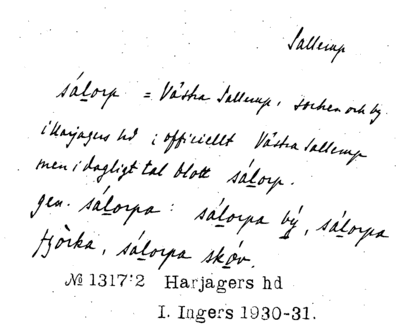 Sallerup
sálorp = Västra Sallerup, socken och by
i Harjagers hd; officiellt Västra Sallerup
men i dagligt tal blott sálorp.
gen. sálorpa: sálorpa bý, sálorpa
fjòrka, sálorpa skóv.
№ 1317:2 Harjagers hd
I. Ingers 1930-31.